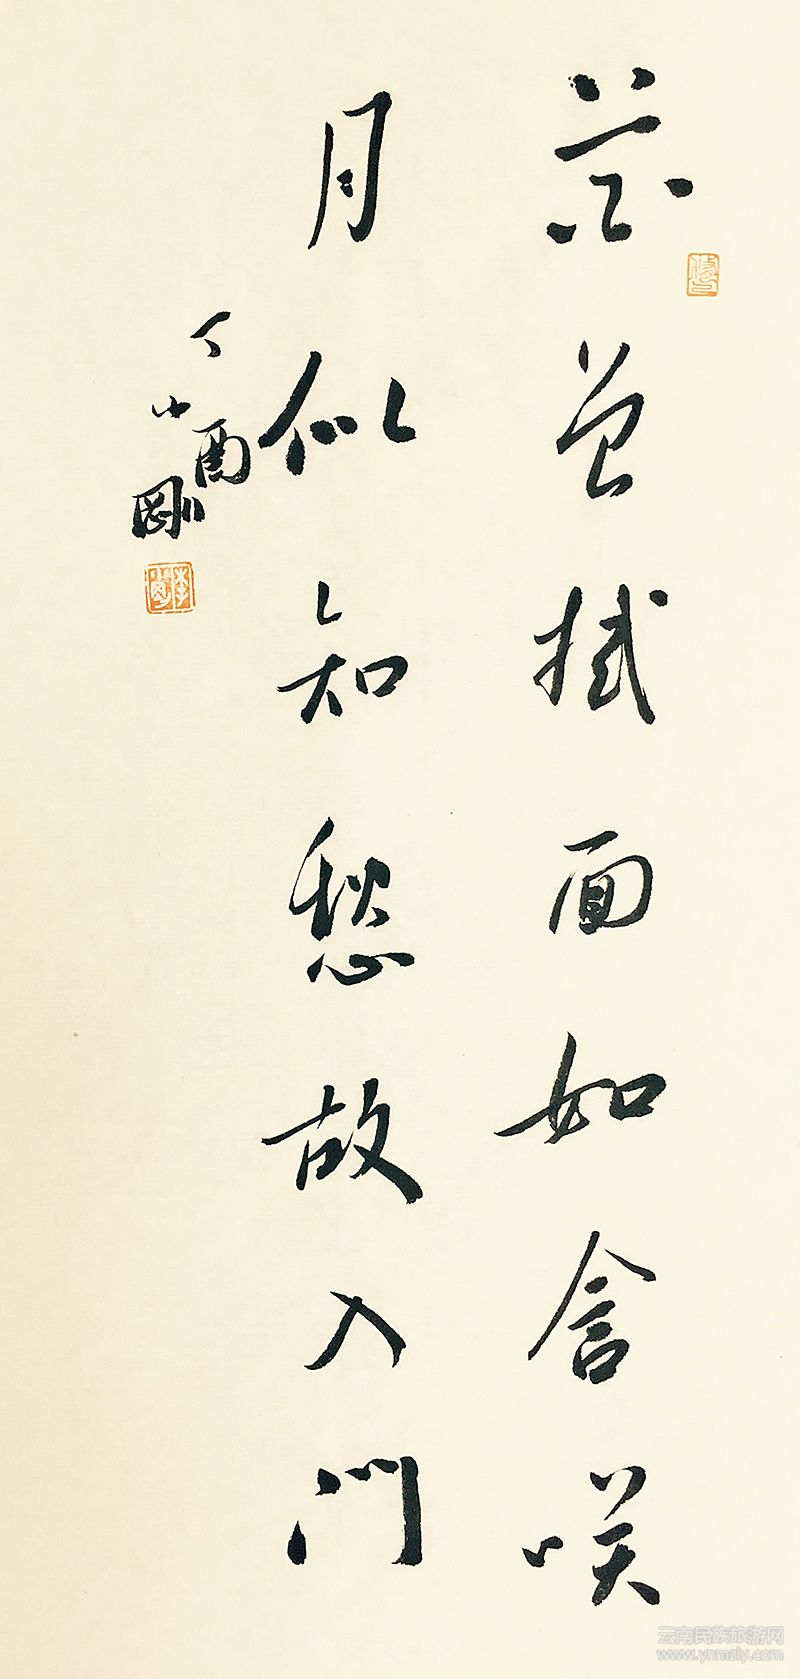 花曾拭面如含咲
月似知愁故入門
丁酉
小剛
云南民族旅游网
www.ynmzly.com